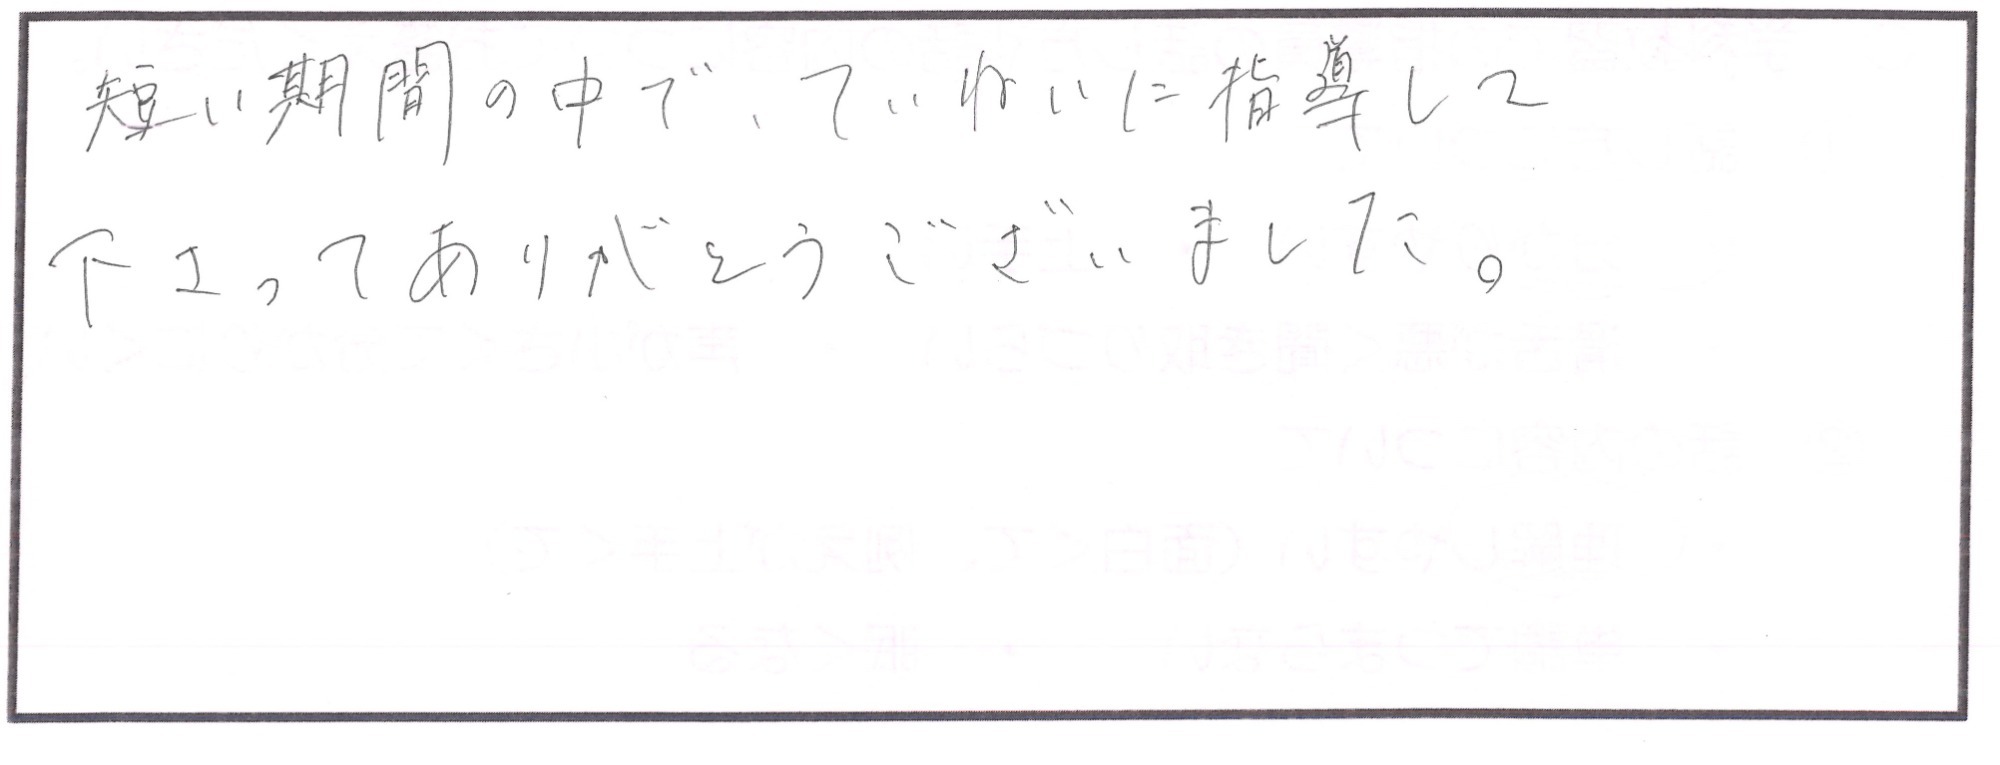 短い期間の中で、ていねいに指導して
下さってありがとうございました。